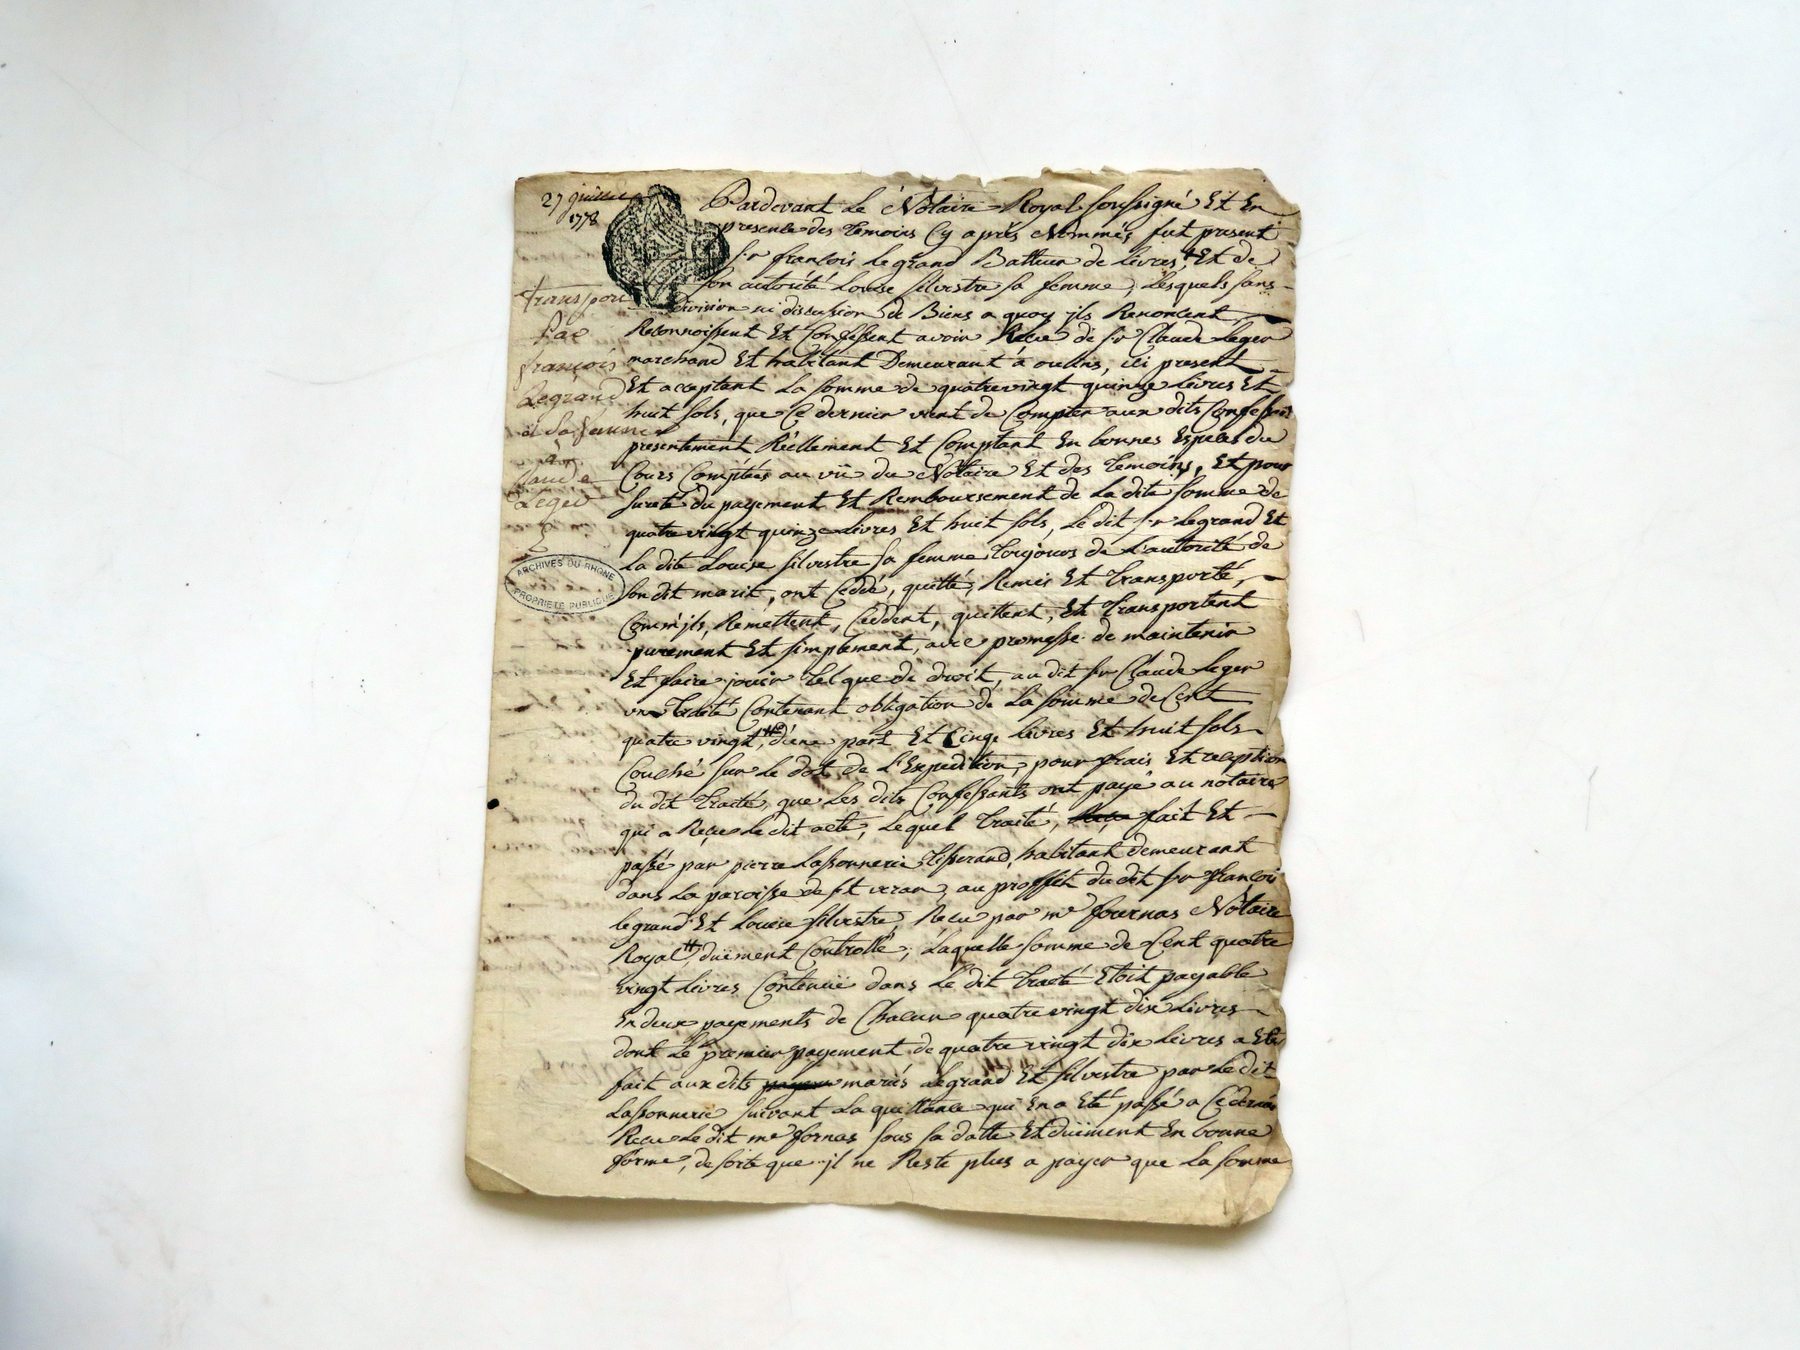 27 juillet
1778
transport
Par
françois
Legrand
et sa femme
a
Claude
Leger
ARCHIVES DU RHONE
PROPRIETE PUBLIQUE
Pardevant Le Notaire Royal soussigné Et En
presence des temoins Cy après Nommés fut present
sr françois Legrand Batteur de Livres, Et de
son autorité Louise silvestre sa femme, Lesquels sans
Division ni discussion de Biens a quoy ils Renoncent
Reconnoissent Et Confessent avoir Reçu de sr Claude Leger
marchand Et habitant Demeurant à oulins, ici present
Et acceptant La somme de quatrevingt quinze Livres Et
huit sols, que Ce dernier vient de Compter aux dits Confessants
presentement Réellement Et Comptant En bonnes Especes du
Cours Comptées au vü du Notaire Et des temoins, Et pour
sureté du payement Et Remboursement de La dite somme de
quatre vingt quinze Livres Et huit sols, Le dit sr Legrand Et
La dite Louise silvestre sa femme toujours de L'autorité de
son dit marit, ont Cedé, quitté, Remis Et transporté,
Com'ils, Remettent, Ceddent, quittent, Et transportent
purement Et simplement, avec promesse de maintenir
Et faire jouir tel que de droit, au dit sr Claude Leger
un traité Contenant obligation de La somme de Cent
quatre vingt tt d'une part Et Cinq Livres Et huit sols
Couché sur Le dot de L'Expedition, pour frais Et reception
du dit traité, que Les dits Confessants ont payé au notaire
qui a Reçu Le dit acte, Lequel traité, fait Et
passé par pierre Lassonnerie tisserand, habitant demeurant
dans La paroisse de st veran, au proffit du dit sr françois
legrand Et Louise silvestre, Recu par me fournas Notaire
Royal tt duëment Controllé, Laquelle somme de Cent quatre
vingt Livres Contenüe dans Le dit traité Etoit payable
En deux payements de Chacun quatre vingt dix Livres
dont Le premier payement de quatre vingt dix Livres a Eté
fait aux dits mariés Legrand Et silvestre par Le dit
Lassonnerie suivant La quittance qui En a Eté passé a Ce dernier
Recu Le dit me fornas sous sa datte Et duëment En bonne
forme, de sorte que il ne Reste plus a payer que La somme